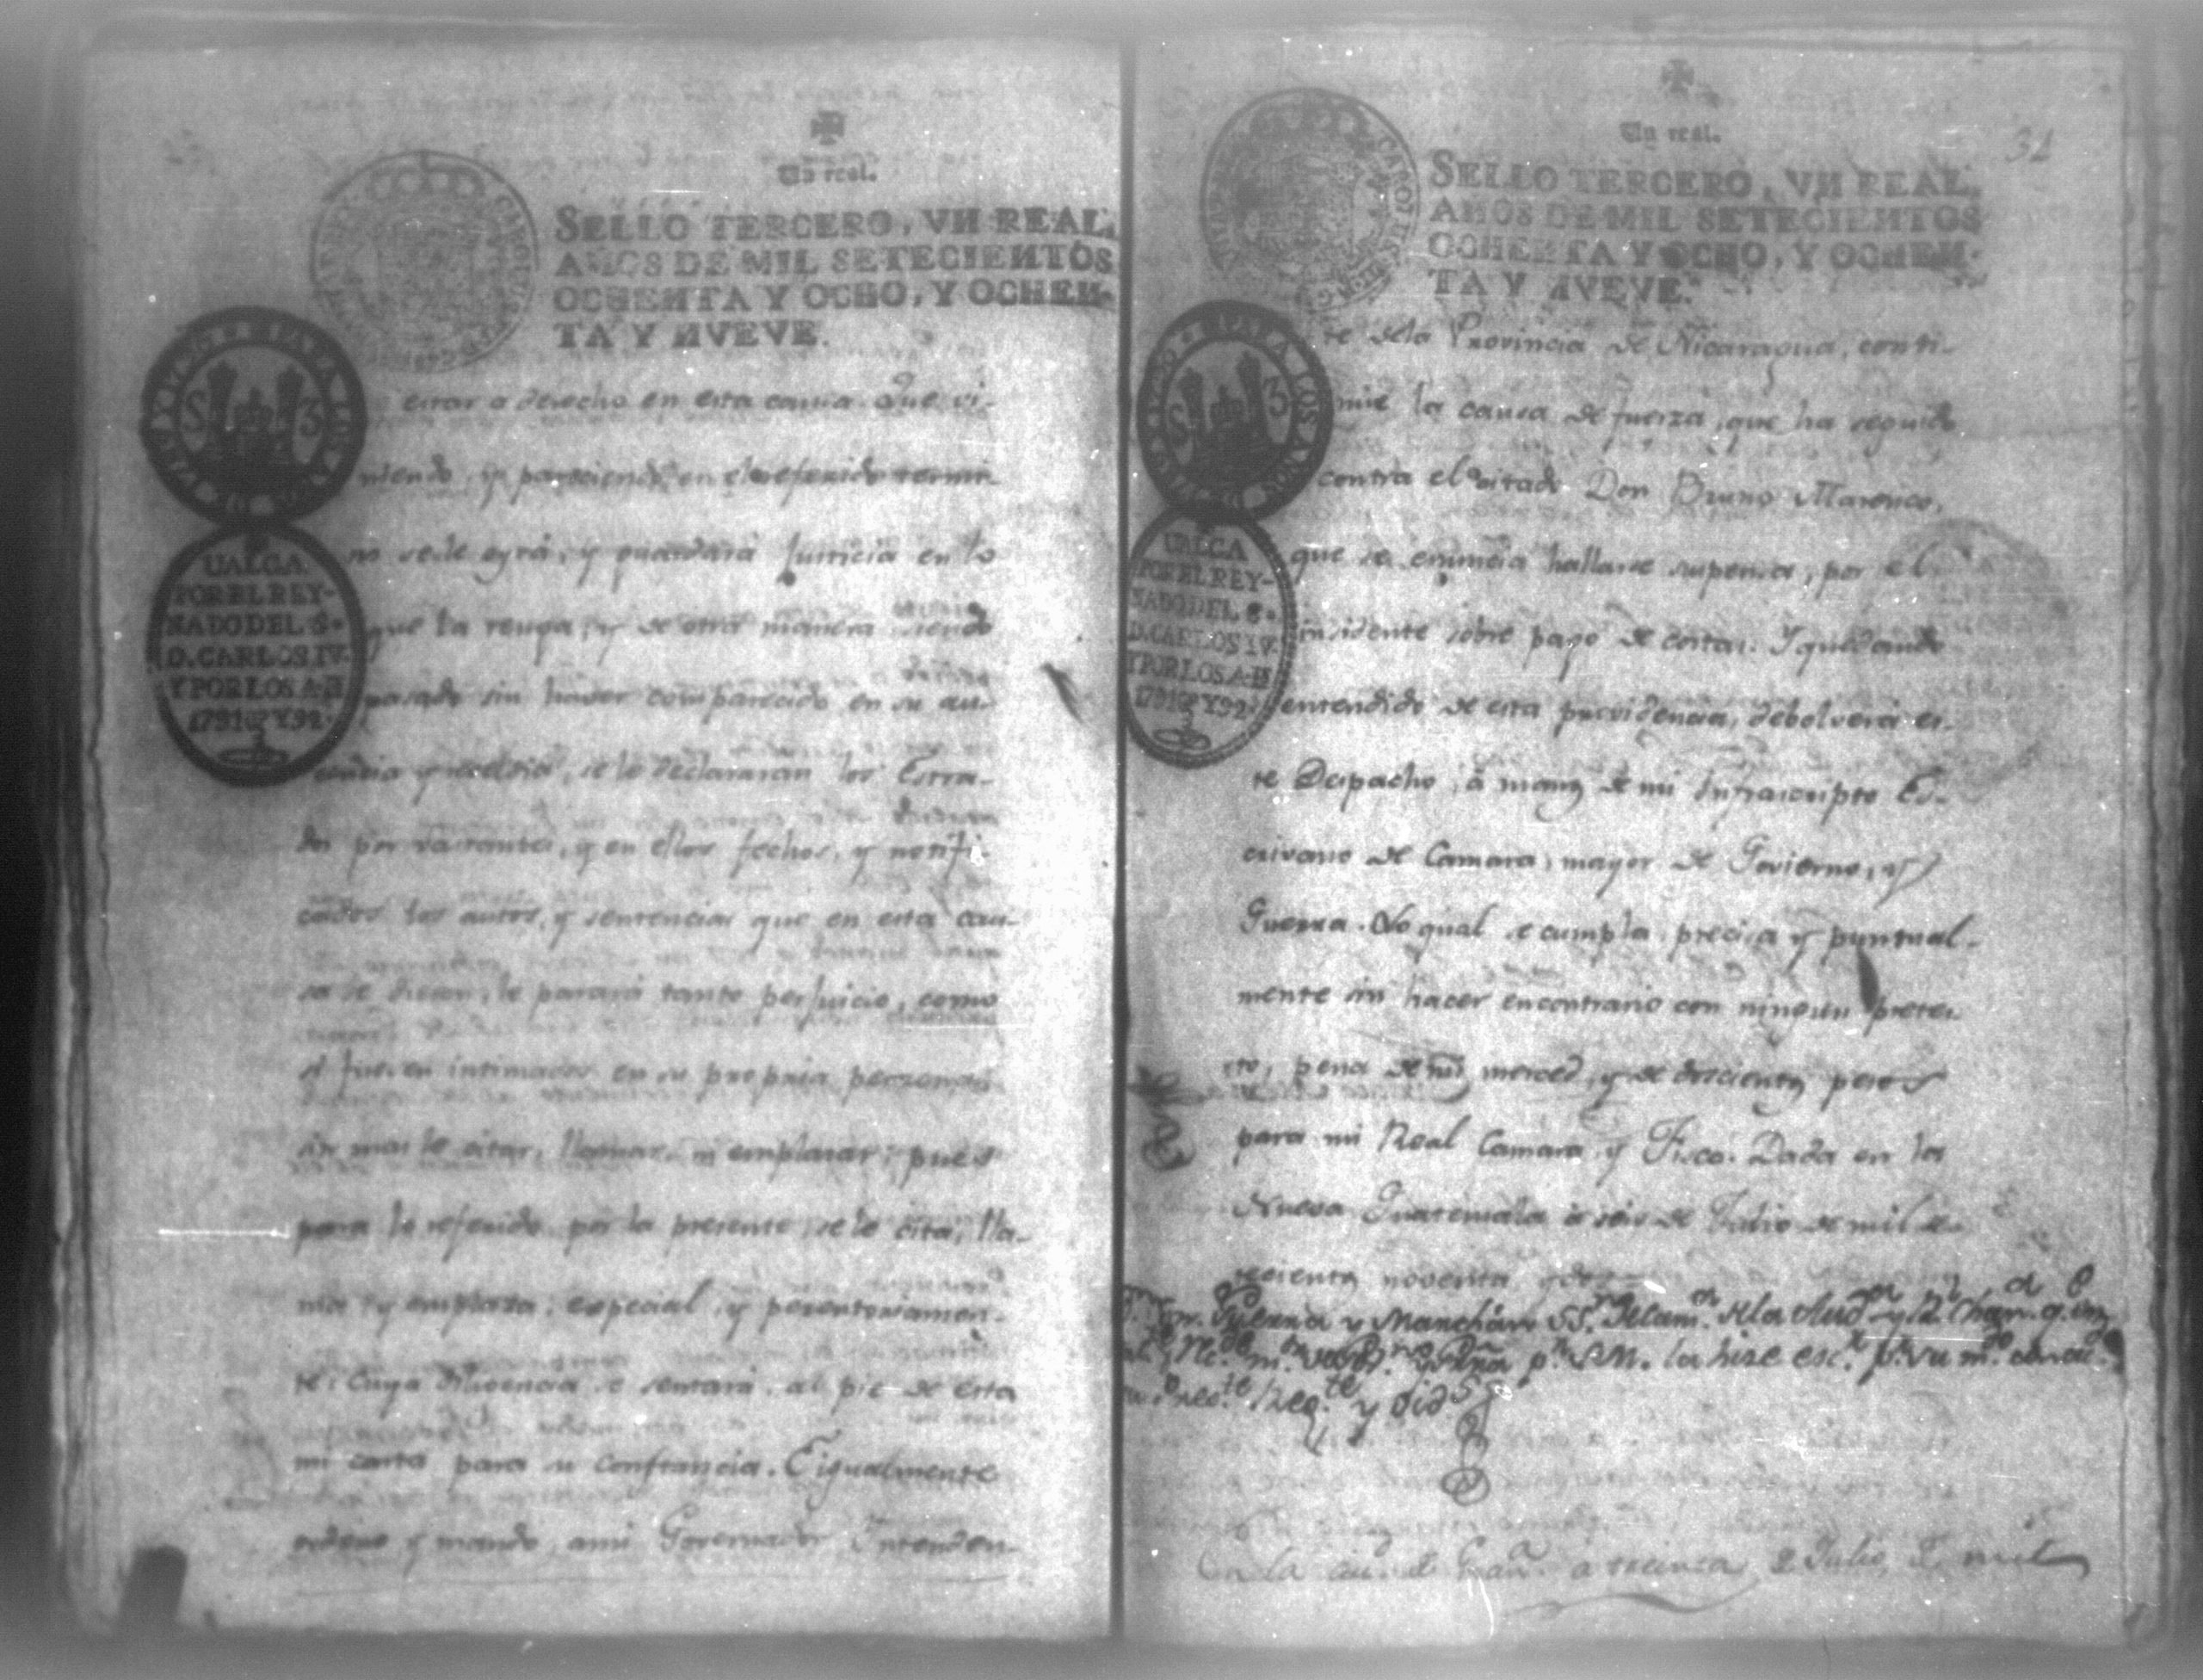 Un real.
SELLO TERCERO, VN REAL,
AÑOS DE MIL SETECIENTOS
OCHENTA Y OCHO, Y OCHEN-
TA Y NVEVE.
VALGA
POR EL REY-
NADO DEL S.
D. CARLOS IV.
Y POR LOS A.
1791 Y 92.
estar a derecho en esta causa. Que vi-
niendo, y pareciendo en el referido termi-
no se le oyrá, y guardará Justicia en lo
que la tenga, y de otra manera siendo
pasado sin haver comparecido en su au-
sencia y reveldia, se le declararan los Estra-
dos por bastantes, y en ellos fechos, y notifi-
cados los autos, y sentencias que en esta cau-
sa se dieren, le parará tanto perjuicio, como
si fuesen intimados en su propria persona
sin mas le citar, llamar, ni emplazar; pues
para lo referido por la presente, se le cita, lla-
ma y emplaza, especial, y perentoriamen-
te: Cuya diligencia se sentará al pie de esta
mi carta para su constancia. E igualmente
ordeno y mando, a mi Governador Intenden-
34
Un real.
SELLO TERCERO, VN REAL,
AÑOS DE MIL SETECIENTOS
OCHENTA Y OCHO, Y OCHEN-
TA Y NVEVE.
VALGA
POR EL REY-
NADO DEL S.
D. CARLOS IV.
Y POR LOS A.
1791 Y 92.
te dela Provincia de Nicaragua, conti-
nue la causa de fuerza, que ha seguido
contra el citado Don Bruno Marenco,
que se enuncia hallarse supensa, por el
insidente sobre pago de costas. Y quedando
entendido de esta providencia, debolverá es-
te Despacho, á manos de mi Infrascripto Es-
crivano de Camara, mayor de Govierno, y
Guerra. Lo qual se cumpla precisa y puntual-
mente sin hacer encontrario con ningun pretes-
to, pena de mi merced, y de doscientos pesos
para mi Real Camara y Fisco. Dada en la
Nueva Guatemala á seis de Julio de mil se-
tecientos noventa y dos
y Manchán SS. de la Aud. y R.
la hize esc. p. su m.
Reg. y Oid
En la de á treinta de Julio, de mil